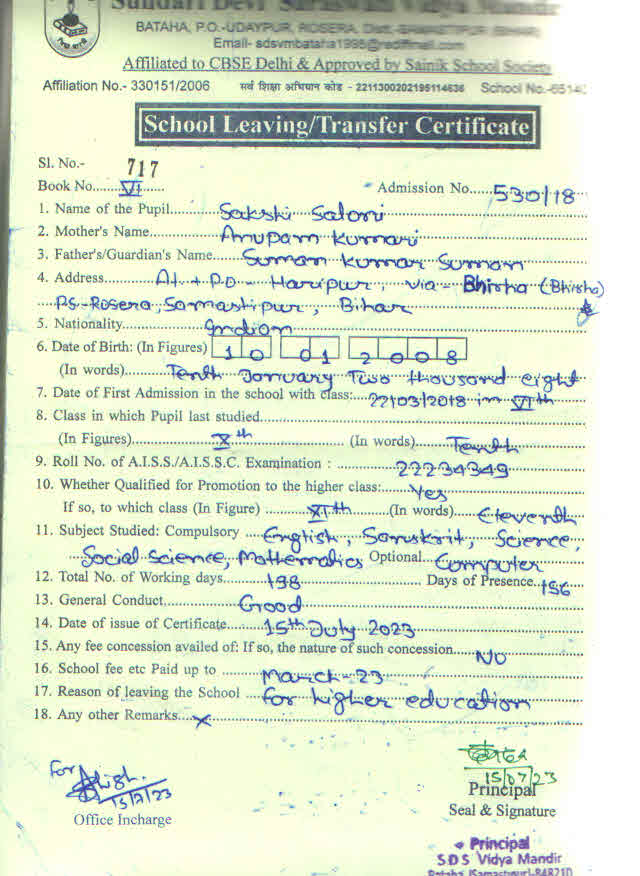 Sundari Devi Saraswati Vidya Mandir
BATAHA, P.O.-UDAYPUR, ROSERA, Dist.
Email- sdsvmbataha1995@rediffmail.com
Affiliated to CBSE Delhi & Approved by Sainik School Society
Affiliation No.- 330151/2006 सर्व शिक्षा अभियान कोड - 2211300202195114636 School No.-6514
School Leaving/Transfer Certificate
Sl. No.- 717
Book No. VI Admission No. 530/18
1. Name of the Pupil Sakshi Saloni
2. Mother's Name Anupam Kumari
3. Father's/Guardian's Name Suman Kumar Suman
4. Address At + P.O - Haripur, via - Bhirha (Bhirha)
P.S-Rosera, Samastipur, Bihar
5. Nationality Indian
6. Date of Birth: (In Figures) 10 01 2008
(In words) Tenth January Two thousand eight
7. Date of First Admission in the school with class: 22/03/2018 in VIth
8. Class in which Pupil last studied
(In Figures) Xth (In words) Tenth
9. Roll No. of A.I.S.S./A.I.S.S.C. Examination : 22234349
10. Whether Qualified for Promotion to the higher class: Yes
If so, to which class (In Figure) XIth (In words) Eleventh
11. Subject Studied: Compulsory English, Sanskrit, Science,
Social science, Mathematics Optional Computer
12. Total No. of Working days 198 Days of Presence 156
13. General Conduct Good
14. Date of issue of Certificate 15th July 2023
15. Any fee concession availed of: If so, the nature of such concession NO
16. School fee etc Paid up to March-23
17. Reason of leaving the School For higher education
18. Any other Remarks x
For
15/7/23
Office Incharge
15/07/23
Principal
Seal & Signature
Principal
S.D.S Vidya Mandir
Bataha (Samastipur)-848210